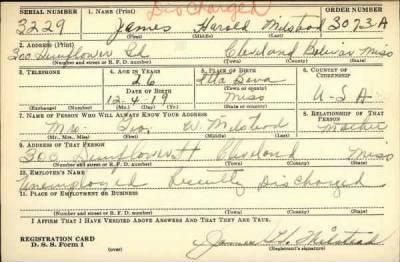 DischargeD
SERIAL NUMBER 1. NAME (Print) ORDER NUMBER
3229 James Harold Milstead 3073-A
(First) (Middle) (Last)
2. ADDRESS (Print)
300 Sunflower Rd Cleveland Bolivar Miss
(Number and street or R. F. D. number) (Town) (County) (State)
3. TELEPHONE 4. AGE IN YEARS 5. PLACE OF BIRTH 6. COUNTRY OF CITIZENSHIP
26 Itta Bena
DATE OF BIRTH (Town or county)
12-4-19 Miss U-S A
(Exchange) (Number) (Mo.) (Day) (Yr.) (State or country)
7. NAME OF PERSON WHO WILL ALWAYS KNOW YOUR ADDRESS 8. RELATIONSHIP OF THAT PERSON
W Milstead Mother
(Mr., Mrs., Miss) (First) (Middle) (Last)
9. ADDRESS OF THAT PERSON
300 Sunflower Cleveland Miss
(Number and street or R. F. D. number) (Town) (County) (State)
10. EMPLOYER'S NAME
Unemployed Recently Discharged
11. PLACE OF EMPLOYMENT OR BUSINESS
(Number and street or R. F. D. number) (Town) (County) (State)
I AFFIRM THAT I HAVE VERIFIED ABOVE ANSWERS AND THAT THEY ARE TRUE.
REGISTRATION CARD
D. S. S. Form 1 (over) James H. Milstead
(Registrant's signature)